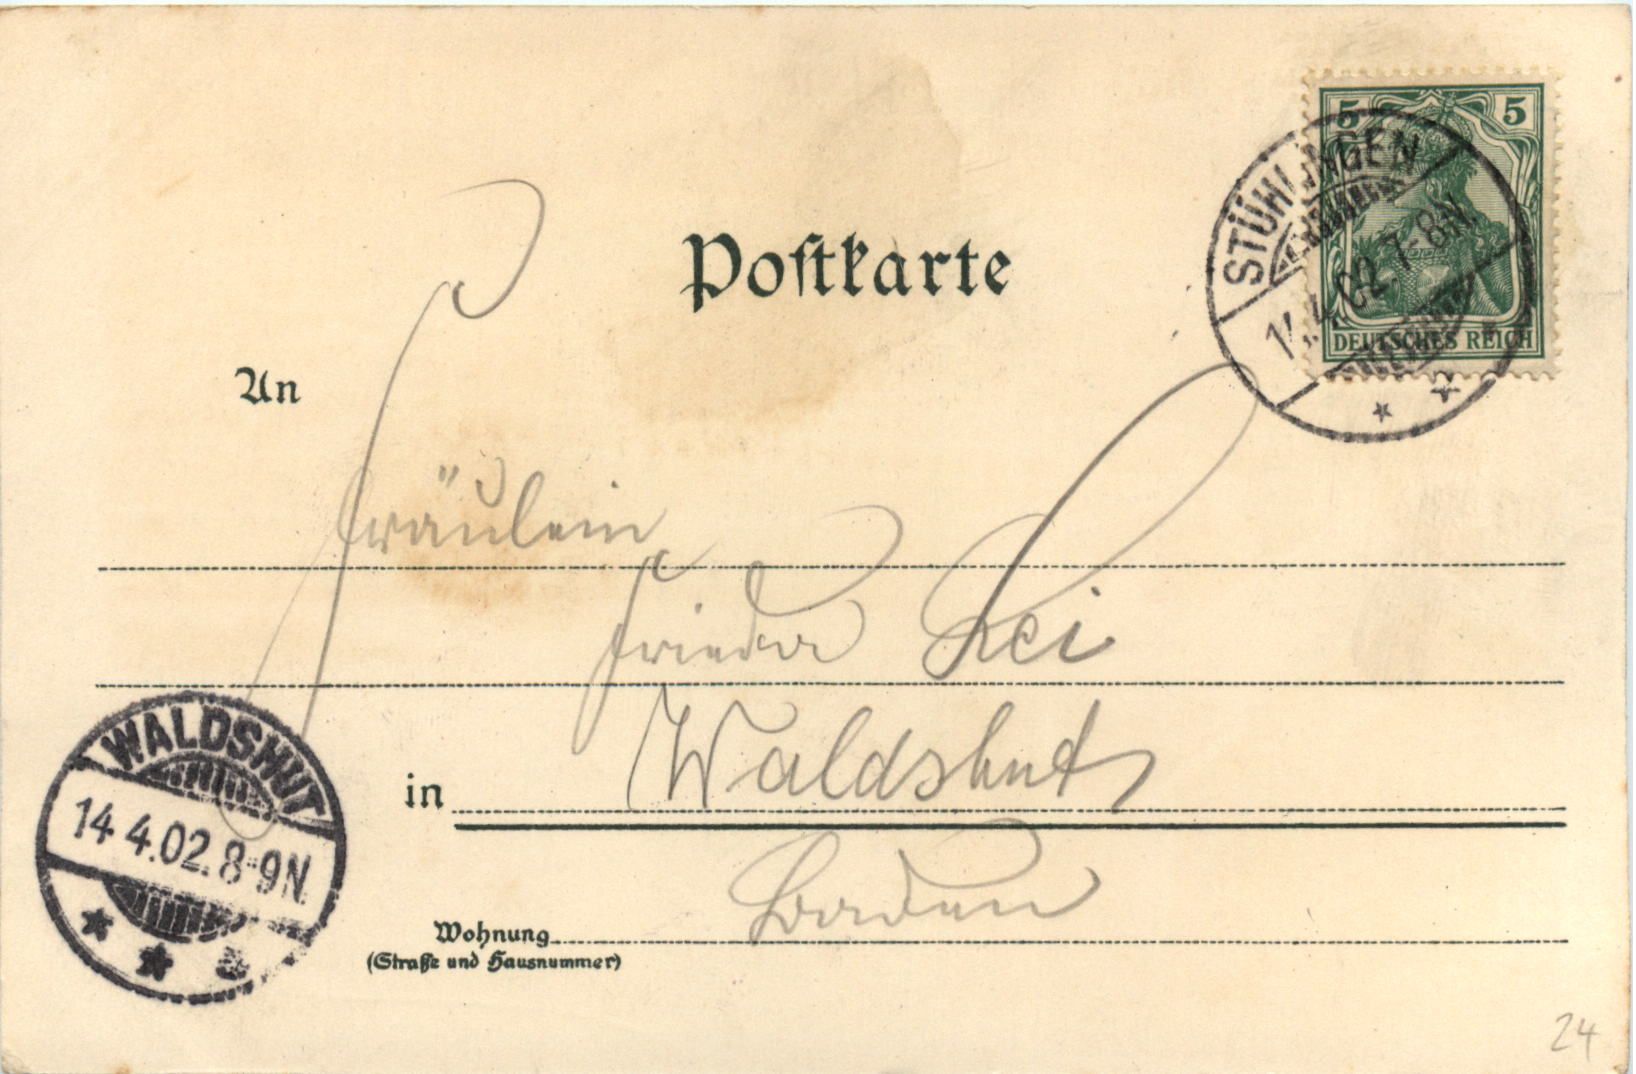 5 5
STÜHLINGEN
14.4.02. 7-8N.
DEUTSCHES REICH
Postkarte
An
Fräulein
Frieda Lei
in Waldshut
Baden
WALDSHUT
14.4.02. 8-9N.
Wohnung
(Straße und Hausnummer)
24